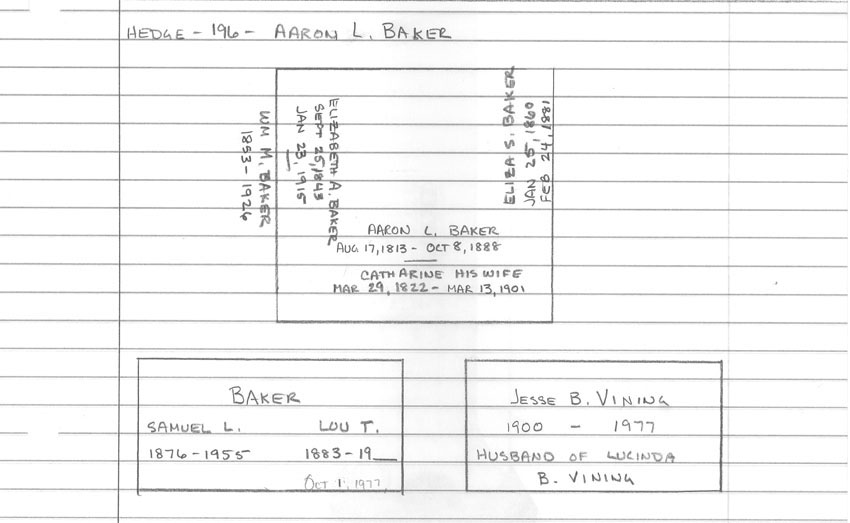 HEDGE - 196 - AARON L. BAKER
WM M. BAKER
1853 - 1926
ELIZABETH A. BAKER
SEPT 25, 1843
JAN 23, 1915
ELIZA S. BAKER
JAN 25, 1860
FEB 24, 1881
AARON L. BAKER
AUG 17, 1813 - OCT 8, 1888
CATHARINE HIS WIFE
MAR 29, 1822 - MAR 13, 1901
BAKER
SAMUEL L. LOU T.
1876 - 1955 1883 - 19__
OCT 1, 1977
JESSE B. VINING
1900 - 1977
HUSBAND OF LUCINDA
B. VINING